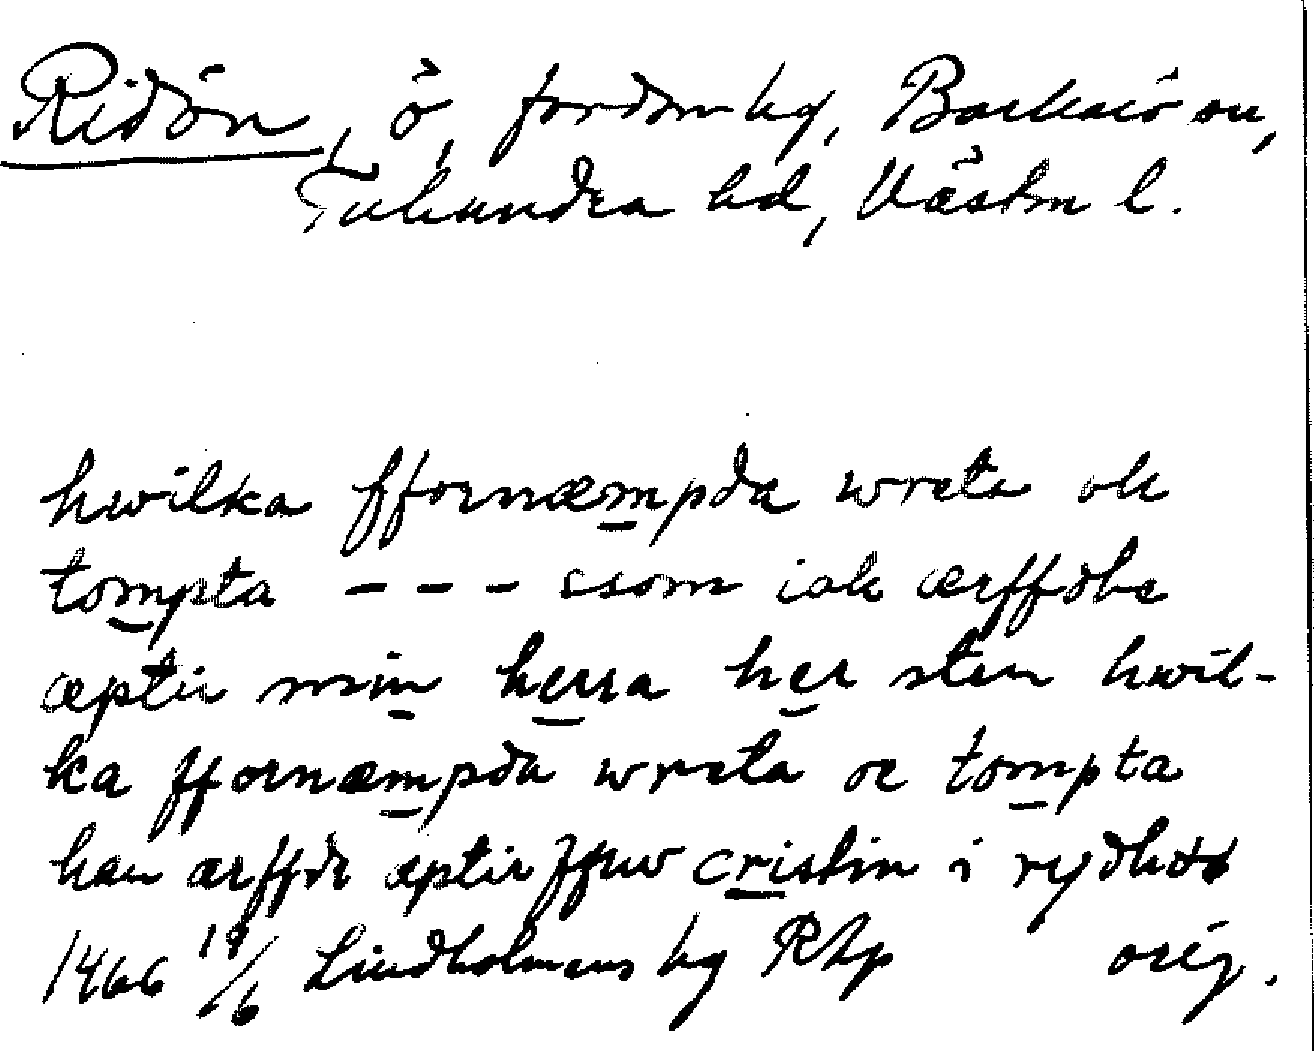 Ridön, ö, fordom hg, Barkarö sn,
Tuhundra hd, Västm l.
hwilka ffornæmpda wreta ok
tompta - - - ssom iak ærffdhe
æptir min herra her sten hwil-
ka ffornæmpda wreta oc tompta
han ærffde æptir ffrw cristin i rydhø
1466 19/6 Lindholmens hg RAp orig.